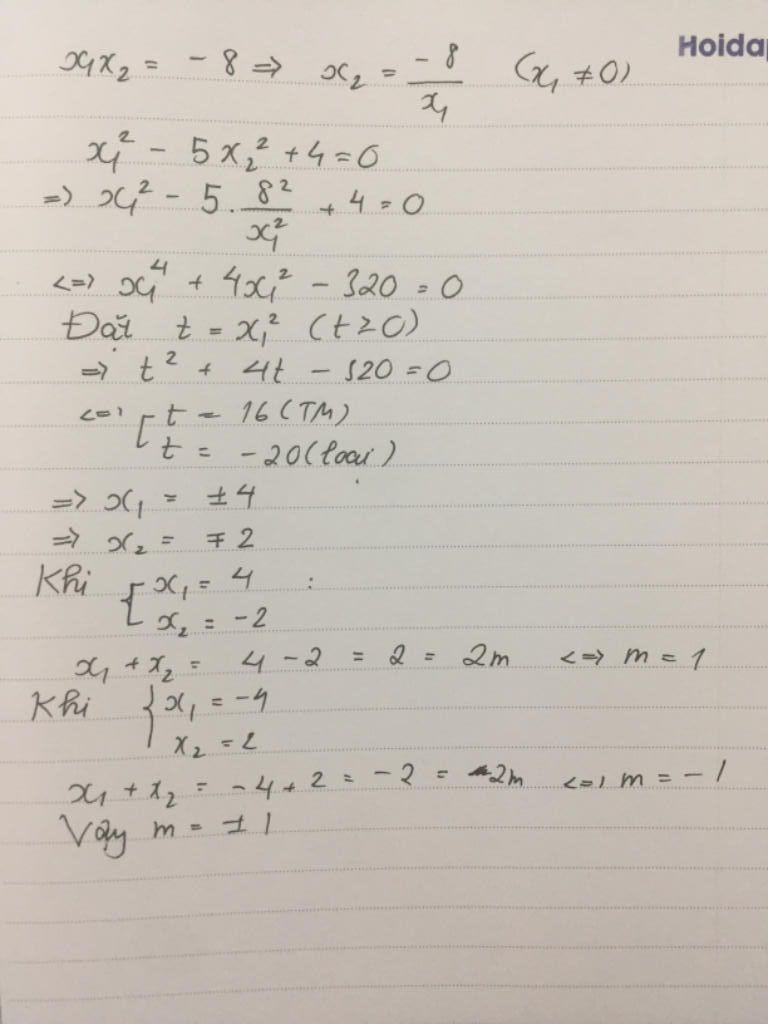 Hoidap
x₁x₂ = -8 => x₂ = -8/x₁ (x₁ ≠ 0)
x₁² - 5x₂² + 4 = 0
=> x₁² - 5 . 8²/x₁² + 4 = 0
<=> x₁⁴ + 4x₁² - 320 = 0
Đặt t = x₁² (t ≥ 0)
=> t² + 4t - 320 = 0
<=> [ t = 16 (TM)
t = -20 (loại)
=> x₁ = ±4
=> x₂ = ∓2
Khi { x₁ = 4 :
x₂ = -2
x₁ + x₂ = 4 - 2 = 2 = 2m <=> m = 1
Khi { x₁ = -4
x₂ = 2
x₁ + x₂ = -4 + 2 = -2 = 2m <=> m = -1
Vậy m = ±1